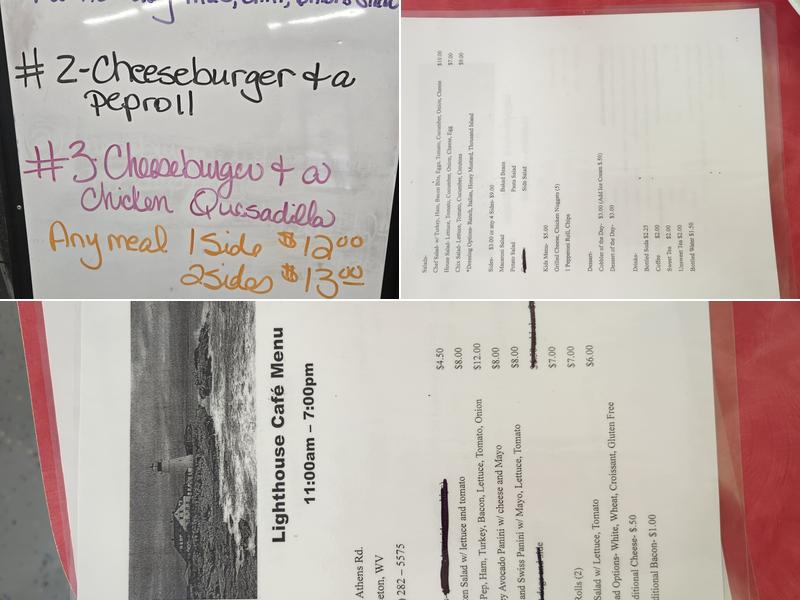 # 2-Cheeseburger & a
peproll
#3-Cheeseburger & a
Chicken Quesadilla
Any meal 1 Side $12.00
2 Sides $13.00
Salads-
Chef Salad- w/ Turkey, Ham, Bacon Bits, Eggs, Tomato, Cucumber, Onion, Cheese $10.00
House Salad- Lettuce, Tomato, Cucumber, Onion, Cheese, Egg $7.00
Chix Salad- Lettuce, Tomato, Cucumber, Croutons $9.00
*Dressing Options- Ranch, Italian, Honey Mustard, Thousand Island
Sides- $3.00 or any 4 Sides- $9.00
Macaroni Salad Baked Beans
Potato Salad Pasta Salad
Side Salad
Kids Menu- $5.00
Grilled Cheese, Chicken Nuggets (5)
1 Pepperoni Roll, Chips
Dessert-
Cobbler of the Day- $3.00 (Add Ice Cream $.50)
Dessert of the Day- $3.00
Drinks-
Bottled Soda $2.25
Coffee $2.00
Sweet Tea $2.00
Unsweet Tea $2.00
Bottled Water $1.50
Lighthouse Café Menu
11:00am – 7:00pm
Athens Rd.
eton, WV
) 282 – 5575
$4.50
en Salad w/ lettuce and tomato $8.00
Pep, Ham, Turkey, Bacon, Lettuce, Tomato, Onion $12.00
y Avocado Panini w/ cheese and Mayo $8.00
and Swiss Panini w/ Mayo, Lettuce, Tomato $8.00
$7.00
Rolls (2) $7.00
Salad w/ Lettuce, Tomato $6.00
ad Options- White, Wheat, Croissant, Gluten Free
ditional Cheese- $.50
ditional Bacon- $1.00